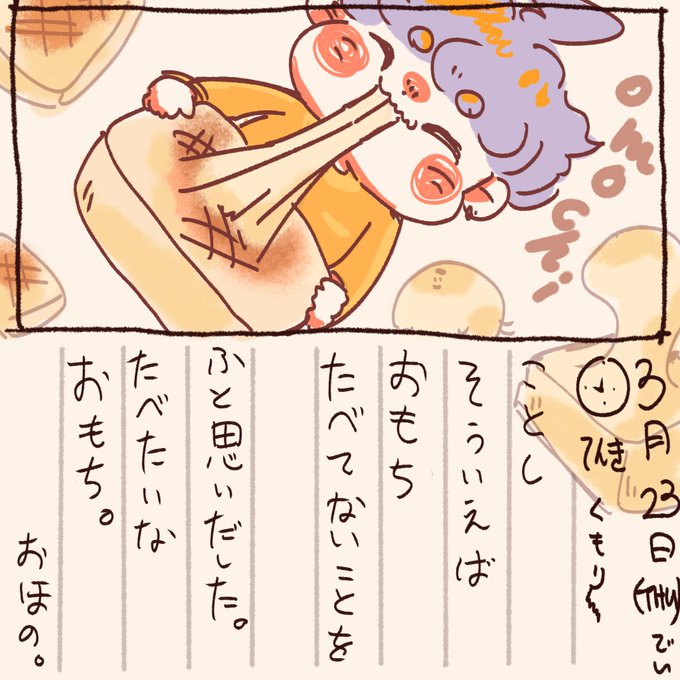 omochi
3月23日(THU)でい
てんき くもり
ことし
そういえば
おもち
たべてないことを
ふと思いだした。
たべたいな
おもち。
おほの。